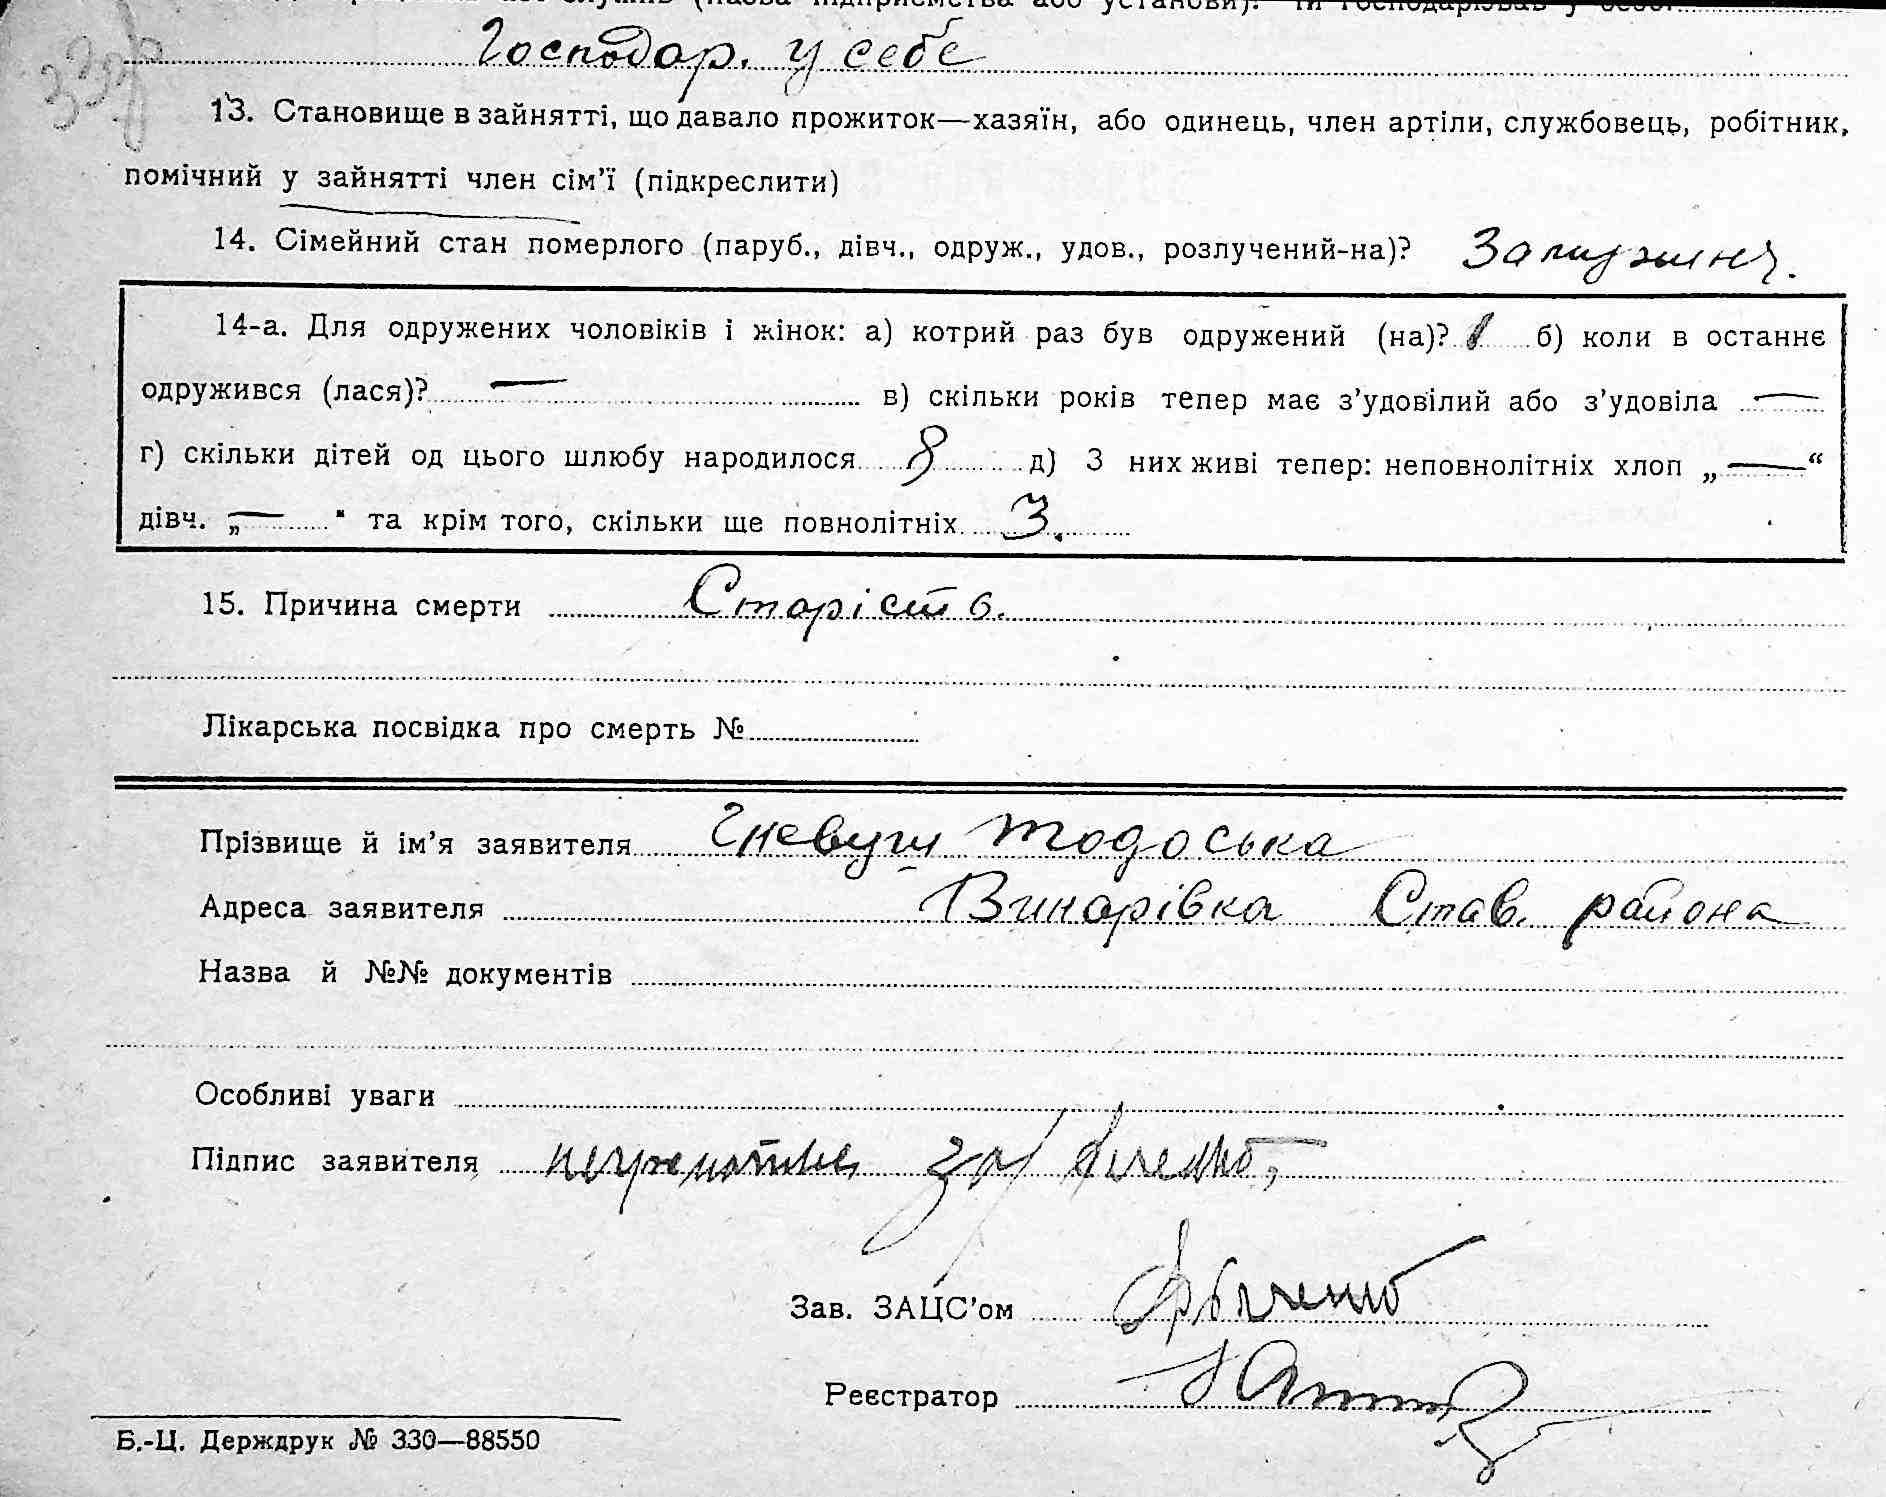 служив (назва підприємства або установи). Чи господарював у себе.
Господар. у себе
13. Становище в зайнятті, що давало прожиток—хазяїн, або одинець, член артіли, службовець, робітник,
помічний у зайнятті член сім’ї (підкреслити)
14. Сімейний стан померлого (паруб., дівч., одруж., удов., розлучений-на)?
14-а. Для одружених чоловіків і жінок: а) котрий раз був одружений (на)? 1 б) коли в останнє
одружився (лася)? — в) скільки років тепер має з’удовілий або з’удовіла —
г) скільки дітей од цього шлюбу народилося 8 д) З них живі тепер: неповнолітніх хлоп „—“
дівч. „—“ та крім того, скільки ще повнолітніх 3.
15. Причина смерти Старість.
Лікарська посвідка про смерть №
Прізвище й ім’я заявителя Тодоська
Адреса заявителя Винарівка Став. района
Назва й №№ документів
Особливі уваги
Підпис заявителя
Зав. ЗАЦС’ом
Реєстратор
Б.-Ц. Держдрук № 330—88550